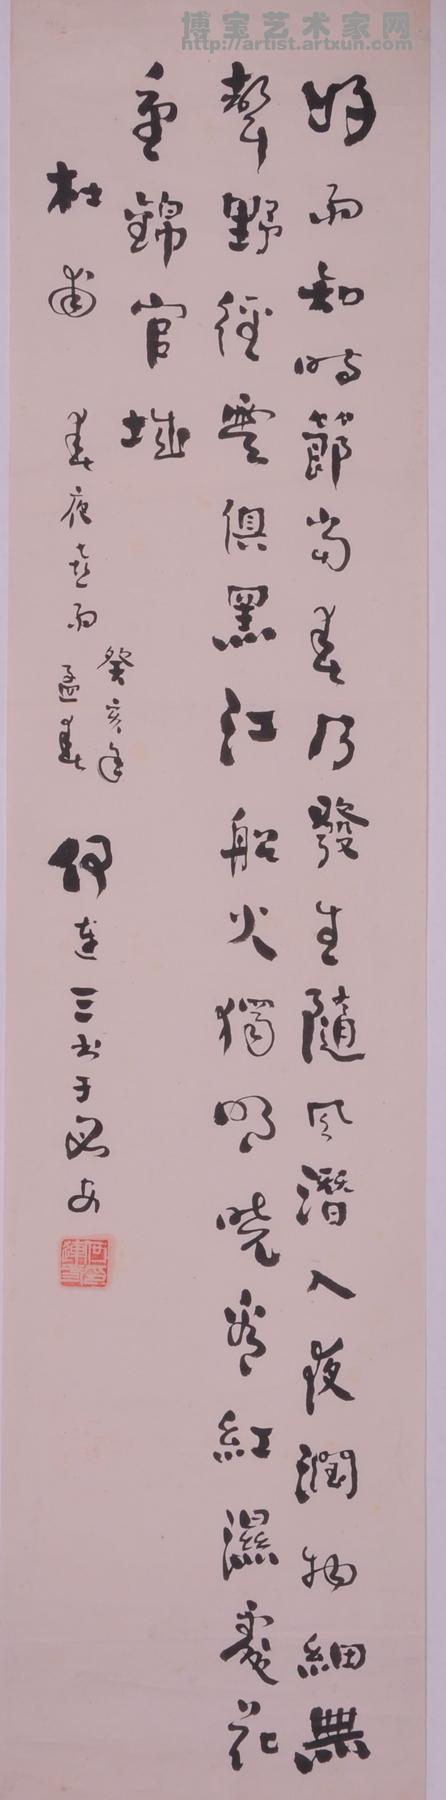 博宝艺术家网
http://artist.artxun.com
好雨知時節當春乃發生隨風潛入夜潤物細無
聲野徑雲俱黑江船火獨明曉看紅濕處花
重錦官城
杜甫 春夜喜雨 癸亥年
孟春 何連三書于西安